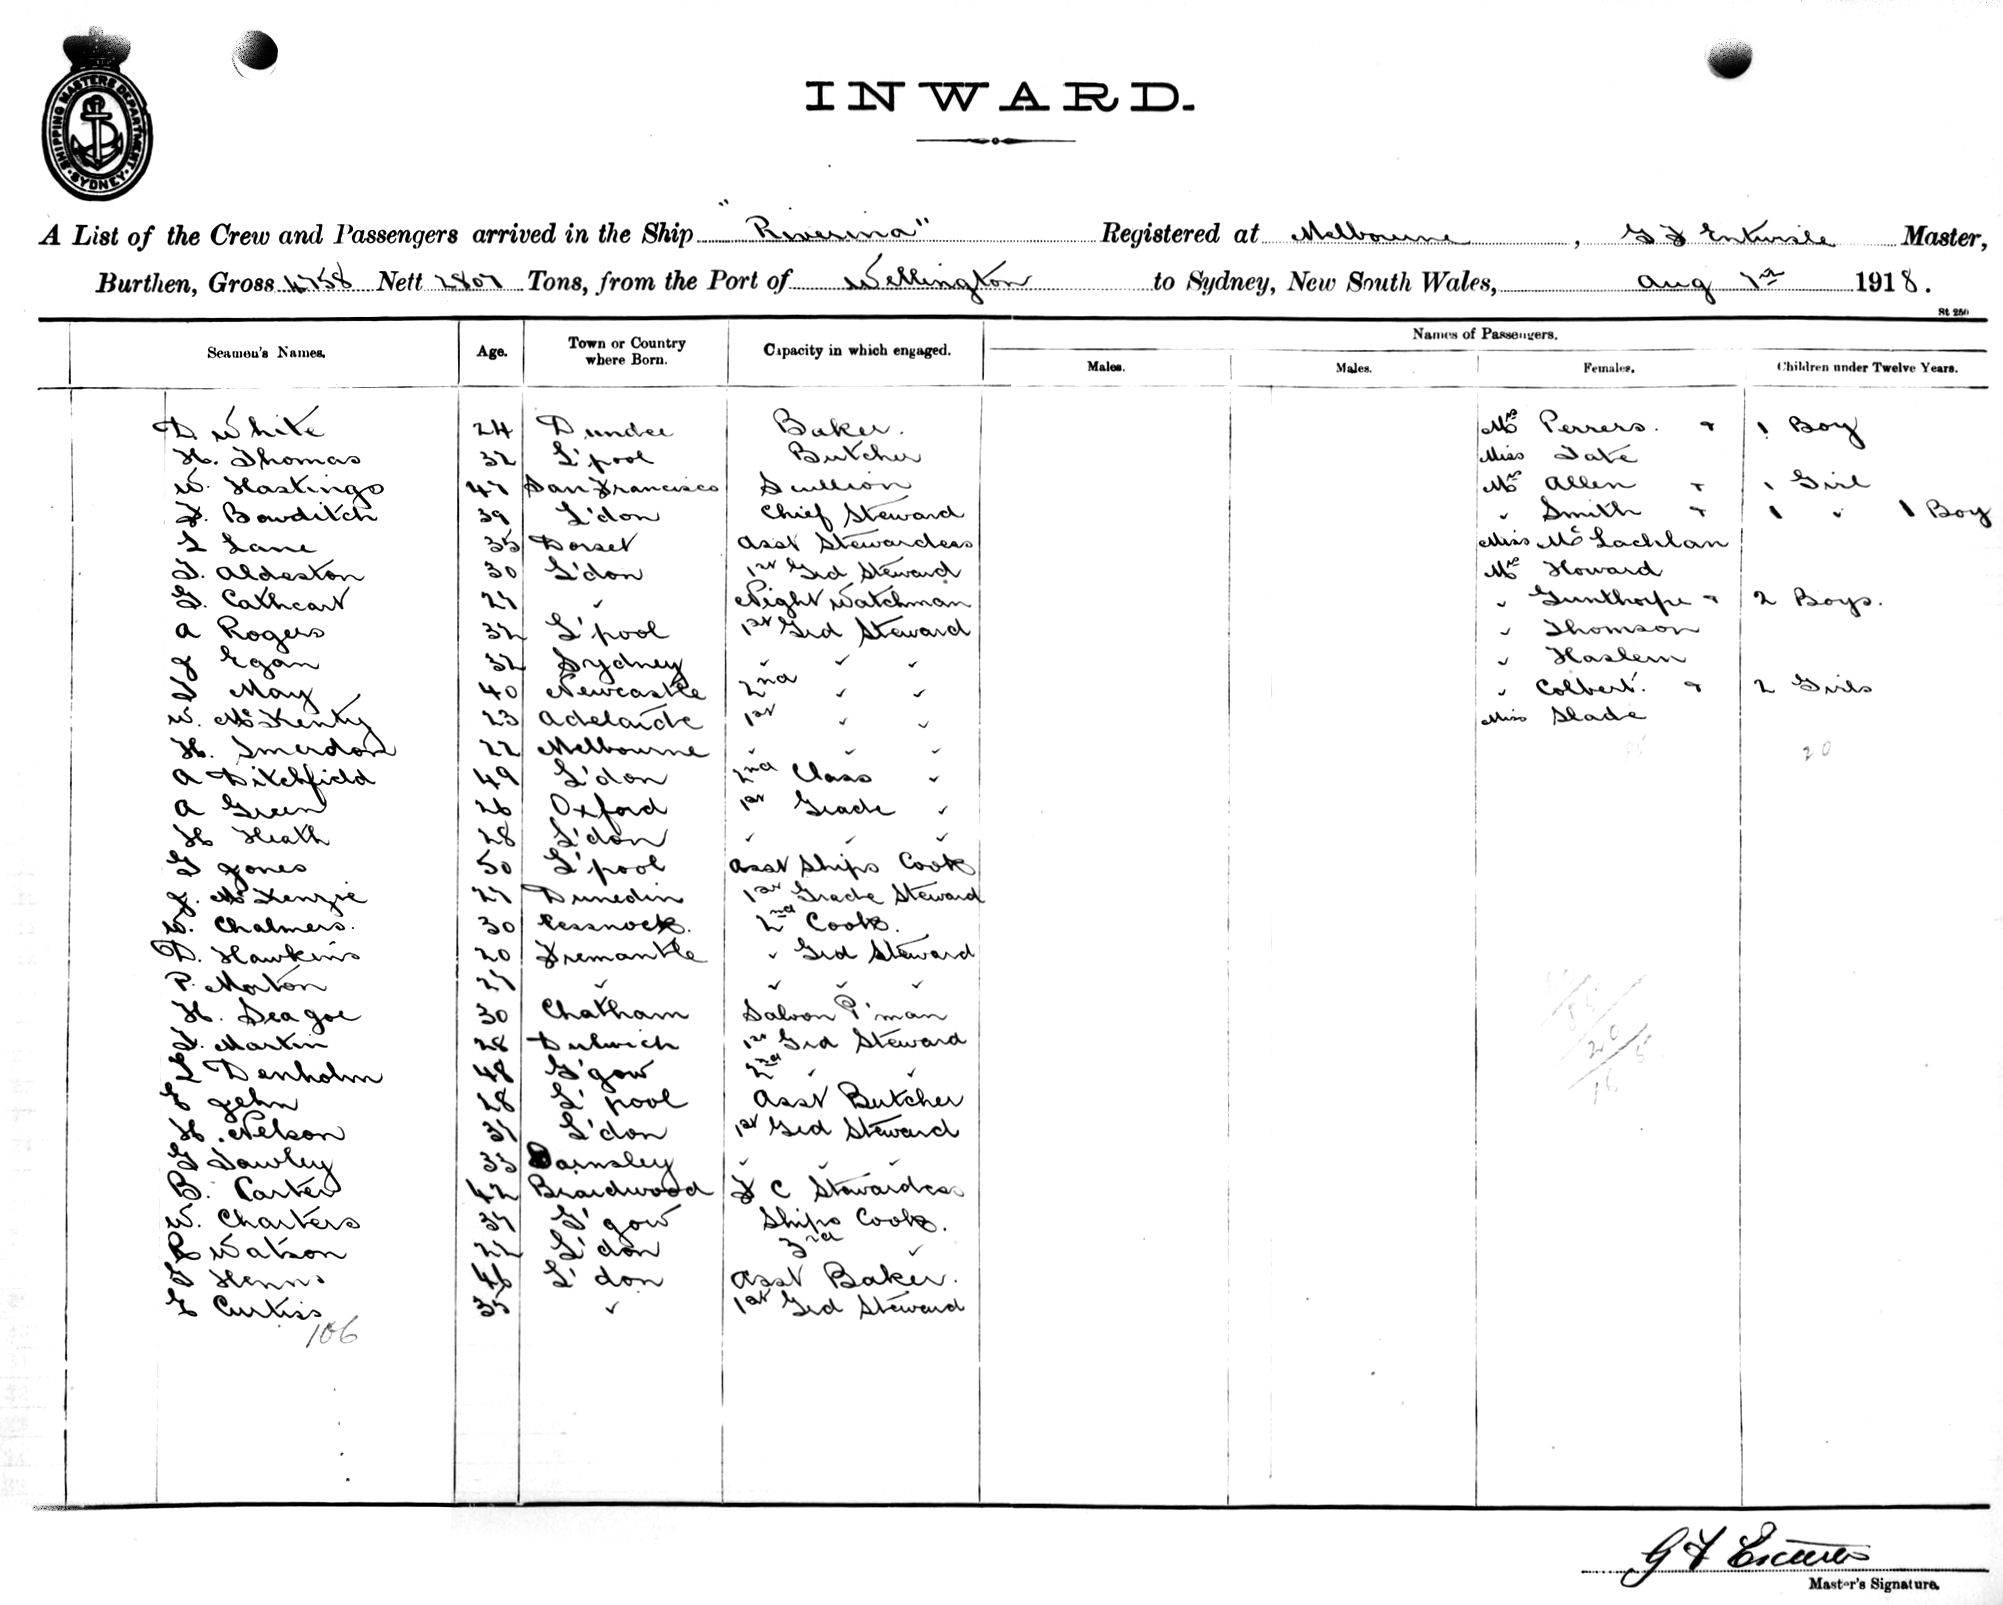 SHIPPING MASTERS DEPARTMENT SYDNEY
INWARD.
A List of the Crew and Passengers arrived in the Ship "Riverina" Registered at Melbourne, G F Entwisle Master,
Burthen, Gross 4758 Nett 2807 Tons, from the Port of Wellington to Sydney, New South Wales, Aug 1st 1918.
St 250
Seamen's Names. Age. Town or Country where Born. Capacity in which engaged. Names of Passengers.
Males. Males. Females. Children under Twelve Years.
D White 24 Dundee Baker. Mrs Perrers. & 1 Boy
H. Thomas 32 L'pool Butcher Miss Tate
W. Hastings 47 San Francisco Scullion Mrs Allen & 1 Girl
F. Bowditch 39 L'don Chief Steward " Smith & 1 " 1 Boy
L Lane 35 Dorset Asst Stewardess Miss McLachlan
T. Aldeston 30 L'don 1st Grd Steward Mrs Howard
G. Cathcart 27 " Night Watchman " Gunthorpe & 2 Boys.
A Rogers 32 L'pool 1st Grd Steward " Thomson
J Egan 32 Sydney " " " " Haslem
T May 40 Newcastle 2nd " " " Colbert. & 2 Girls
W. McKenty 23 Adelaide 1st " " Miss Slade
H. Smerdon 22 Melbourne " " " 20
A Ditchfield 49 L'don 2nd Class "
A Green 26 Oxford 1st Grade "
H Heath 28 L'don " " "
G Jones 50 L'pool Asst Ships Cook
J. McKenzie 27 Dunedin 1st Grade Steward
W. Chalmers. 30 Cessnock. 2nd Cook.
D. Hawkins 20 Fremantle " Grd Steward
P. Morton 27 " " " "
H. Seagoe 30 Chatham Saloon P'man
F. Martin 28 Dulwich 1st Grd Steward
L Denholm 48 G'gow 2nd " "
E Jehn 28 L'pool Asst Butcher
H. Nelson 37 L'don 1st Grd Steward
G Tawley 33 Barnsley " " "
B. Carter 42 Braidwood F C Stewardess
W. Charters 37 G'gow Ships Cook.
R Watson 22 L'don 3rd "
F Henns 46 L'don Asst Baker.
E Curtiss 35 " 1st Grd Steward
106
G F Entwisle
Master's Signature.